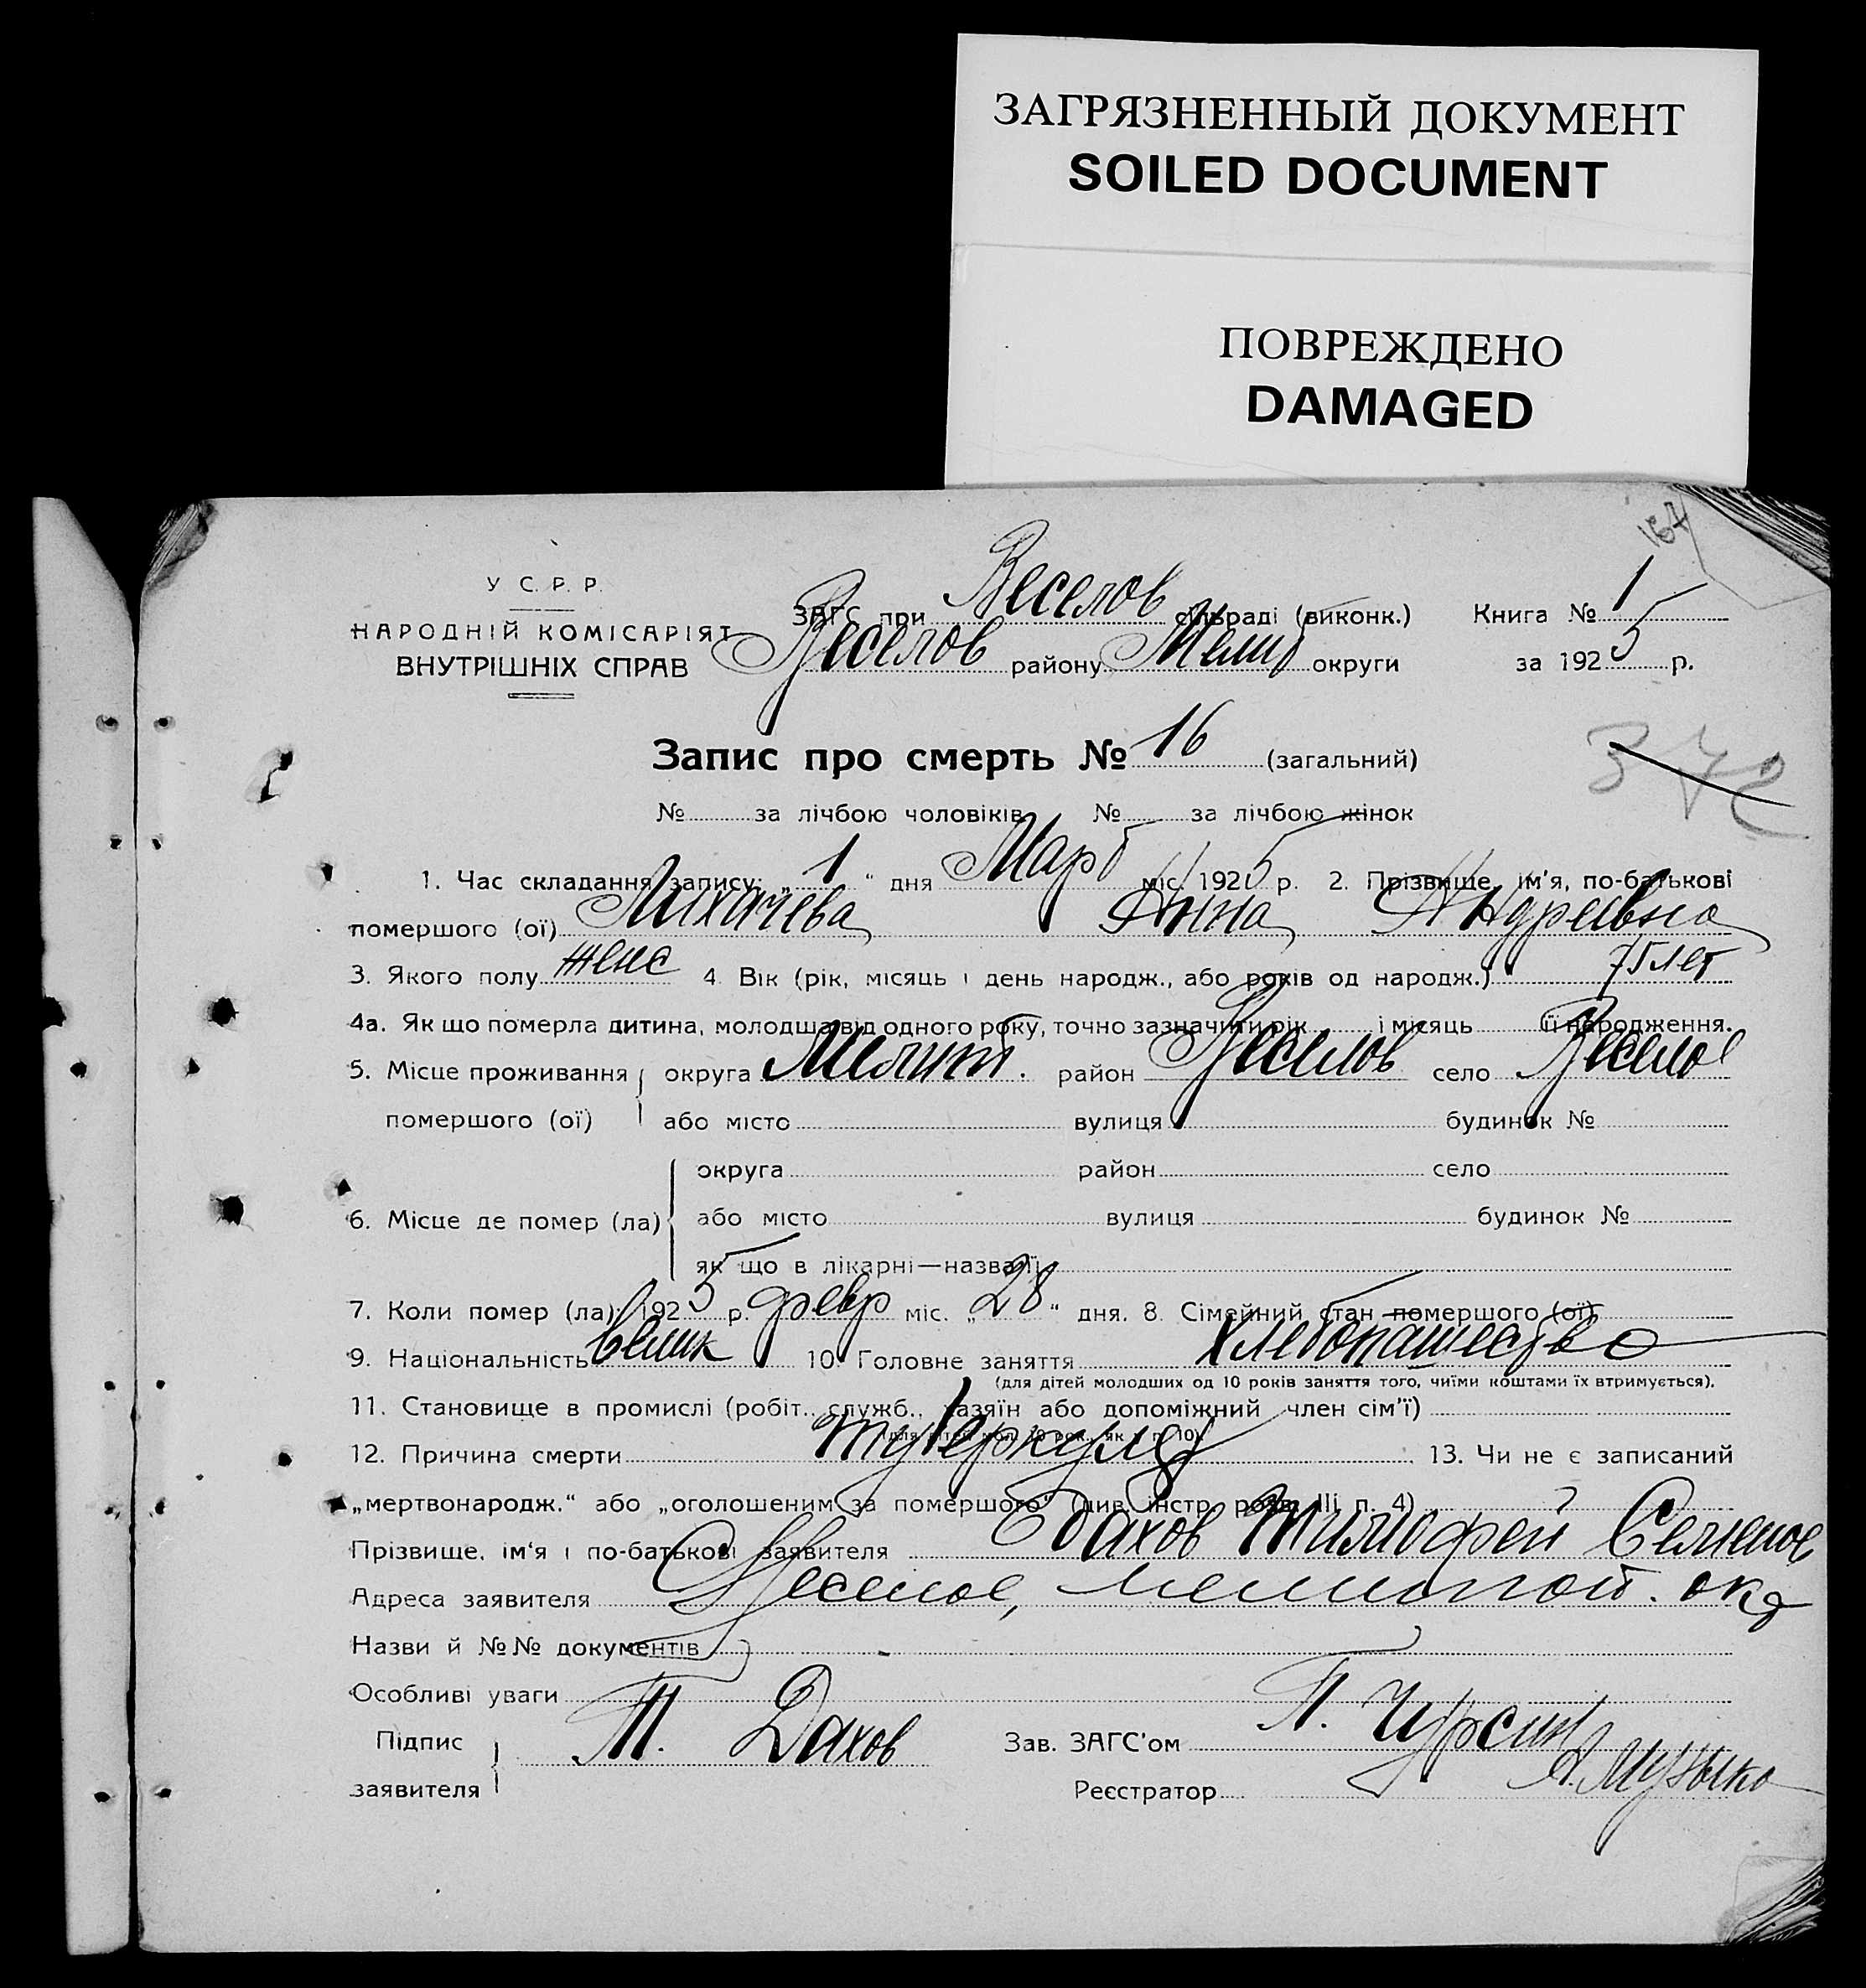 ЗАГРЯЗНЕННЫЙ ДОКУМЕНТ
SOILED DOCUMENT
ПОВРЕЖДЕНО
DAMAGED
167
У С. Р. Р.
НАРОДНІЙ КОМІСАРІЯТ
ВНУТРІШНІХ СПРАВ
ЗАГС при Веселов сільраді (виконк.) Книга № 1
Веселов району Мелит округи за 1925 р.
Запис про смерть № 16 (загальний)
372
№ за лічбою чоловіків № за лічбою жінок
1. Час складання запису: „ 1 “ дня Март міс. 1925 р. 2. Прізвище, ім'я, по-батькові
помершого (ої) Лихачева Анна Андреевна
3. Якого полу женс 4. Вік (рік, місяць і день народж., або років од народж.) 75 лет
4а. Як що померла дитина, молодша від одного року, точно зазначити рік і місяць її народження.
5. Місце проживання помершого (ої) округа Мелит. район Веселов село Веселое
або місто вулиця будинок №
6. Місце де помер (ла) округа район село
або місто вулиця будинок №
як що в лікарні—назва її
7. Коли помер (ла) 1925 р. февр міс. „ 28 “ дня. 8. Сімейний стан помершого (ої)
9. Національність Велик 10. Головне заняття Хлебопашество
(для дітей молодших од 10 років заняття того, чиїми коштами їх втримується).
11. Становище в промислі (робіт., служб., хазяїн або допоміжний член сім'ї)
(для дітей мол. 10 рок., як у п. 10)
12. Причина смерти туберкулез 13. Чи не є записаний
„мертвонародж.“ або „оголошеним за помершого“ (див. інстр. розд. III п. 4)
Прізвище, ім'я і по-батькові заявителя Дахов Тимофей Семенов
Адреса заявителя Веселое, Мелитопол. окр
Назви й №№ документів
Особливі уваги
Підпис заявителя Т. Дахов Зав. ЗАГС'ом П. Чурсин
Реєстратор А. Музыка